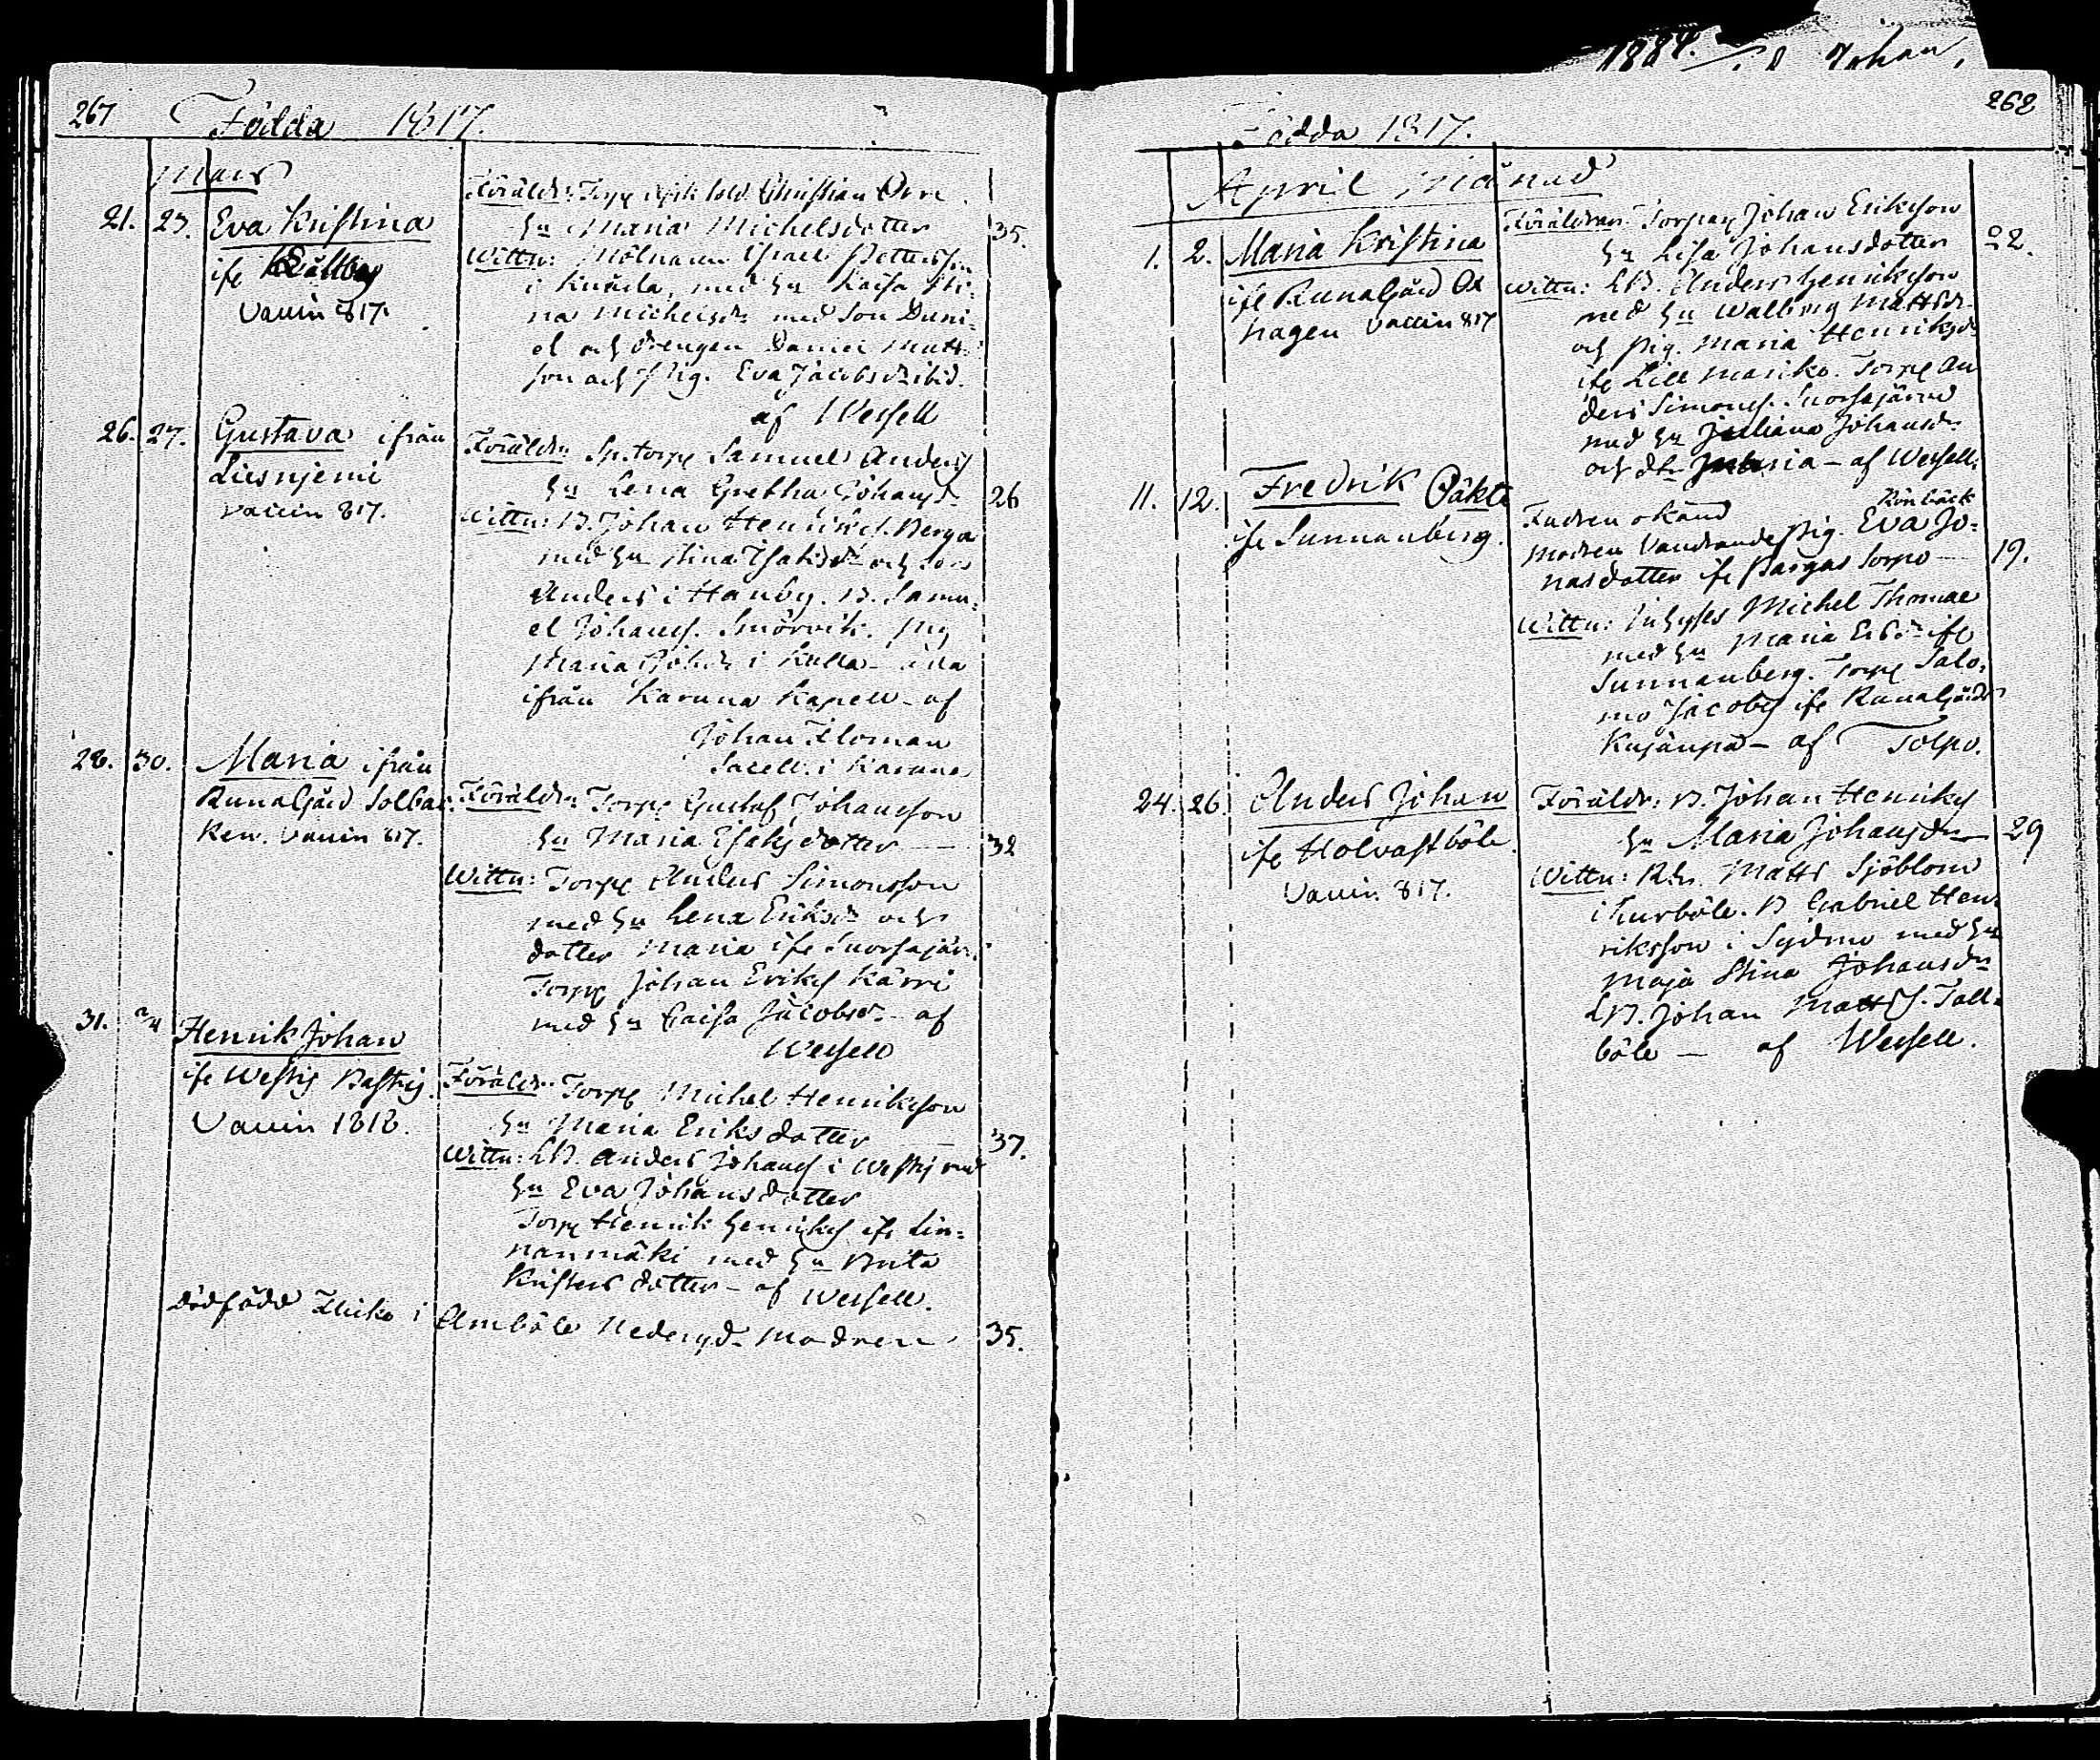 1884.
Johan
267 Födda 1817.
Mars
21. 23. Eva Kristina
ife Källberg
Vaccin 817.
Föräldr: Torp. Christian Orre
hu Maria Michelsdotter 35.
Wittn: Mölnaren Israel Pettersson
i Kuärla, med hu Kaisa Sti-
na Michelsdr med Son Dani-
el och drengen Daniel Matts-
son och Pig. Eva Jacobsdr ibid.
af Wessell
26. 27. Gustava ifrån
Liesnjemi
Vaccin 817.
Föräldr: Sp.torp Samuel Anders
hu Lena Gretha Johansd. 26
Wittn: B. Johan Henrikss. Berga
med hu Stina Isaksdr och son
Anders i Hanby. B. Samu-
el Johanss. Smörvik. Pig
Maria Johdr i Kulla - alla
ifrån Karuna Kapell - af
Johan Floman
Sacell. i Karuna
28. 30. Maria ifrån
Runagård Solbac-
ken. Vaccin 817.
Föräldr: Torp Gustaf Johansson
hu Maria Isaksdotter — 32
Wittn: Torp Anders Simonsson
med hu Lena Eriksdr och
dotter Maria ife Snorsajärvi.
Torp Johan Eriks Kärri
med hu Caisa Jacobsdr - af
Wessell
31. 2/4 Henrik Johan
ife Westij Bastij.
Vaccin 1818.
Föräldr: Torp Michel Henriksson
hu Maria Eriksdotter — 37.
Wittn: LB. Anders Johanss i Westij med
hu Eva Johansdotter
Torp Henrik Henriks ife Lin-
nanmäki med hu Brita
Kristersdotter - af Wessell.
Dödfödd Flicka i Armböle Nedergd. Modren 35.
262
Födda 1817.
April Månad
1. 2. Maria Kristina
ife Runagård Ox
hagen Vaccin 817
Föräldrar: Torpar Johan Eriksson
hu Lisa Johansdotter 22.
Wittn: LB. Anders Henriksson
med hu Walborg Mattsdr
och Pig. Maria Henriksdr
ife Lill Mariko. Torp An
ders Simons. Snorsajärvi
med hu Juliana Johansdr
och dtr Maria - af Wessell.
11. 12. Fredrik Oäkta
ife Sunnanberg.
Fadren okänd
Rönbäck
Modren Vandrande Pig. Eva Jo-
nasdotter ife Pargas Sorpo — 19.
Wittn: Inhyses Michel Thomae
med hu Maria Ersdr ife
Sunnanberg. Torp Salo-
mo Jacobs ife Runagård
Kujanpä - af Tolpo.
24. 26. Anders Johan
ife Holvastböle.
Vaccin. 817.
Föräldr: B. Johan Henriks
hu Maria Johansdr — 29
Wittn: Rh. Matts Sjöblom
i Kurböle. B Gabriel Hen-
riksson i Sydmo med hu
Maja Stina Johansdr
LB. Johan Matts. Tall-
böle — af Wessell.